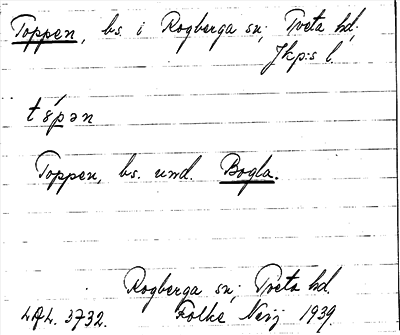 Toppen, bs. i Rogberga sn; Tveta hd;
Jkp:s l.
tópən
Toppen, bs. und. Bogla.
Rogberga sn; Tveta hd.
3732. Folke 1939.